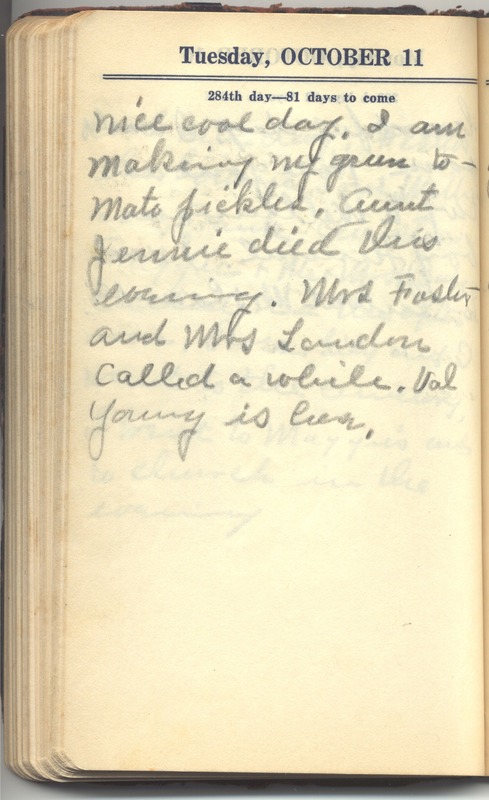 Tuesday, OCTOBER 11
284th day—81 days to come
nice cool day. I am
making my green to-
mato pickles. Aunt
Jennie died this
evening. Mrs Foster
and Mrs Landon
called a while. Val
Young is here.